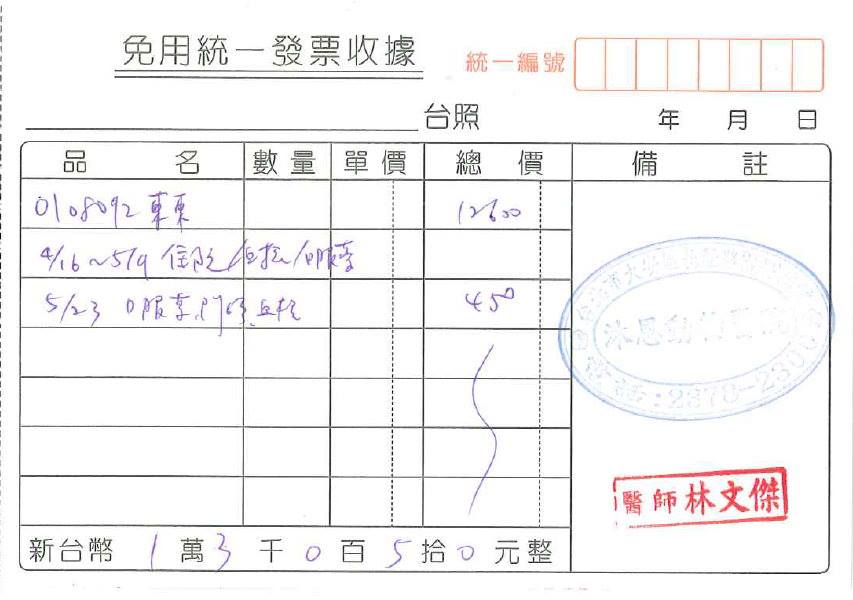 免用統一發票收據
統一編號
台照 年 月 日
品名 數量 單價 總價 備註
0108092 東東 12600
4/16~5/9 住院/血檢/口服藥
5/23 口服藥,門診,血檢 450
沐恩動物醫院
電話:2378-2300
醫師林文傑
新台幣 1 萬 3 千 0 百 5 拾 0 元整